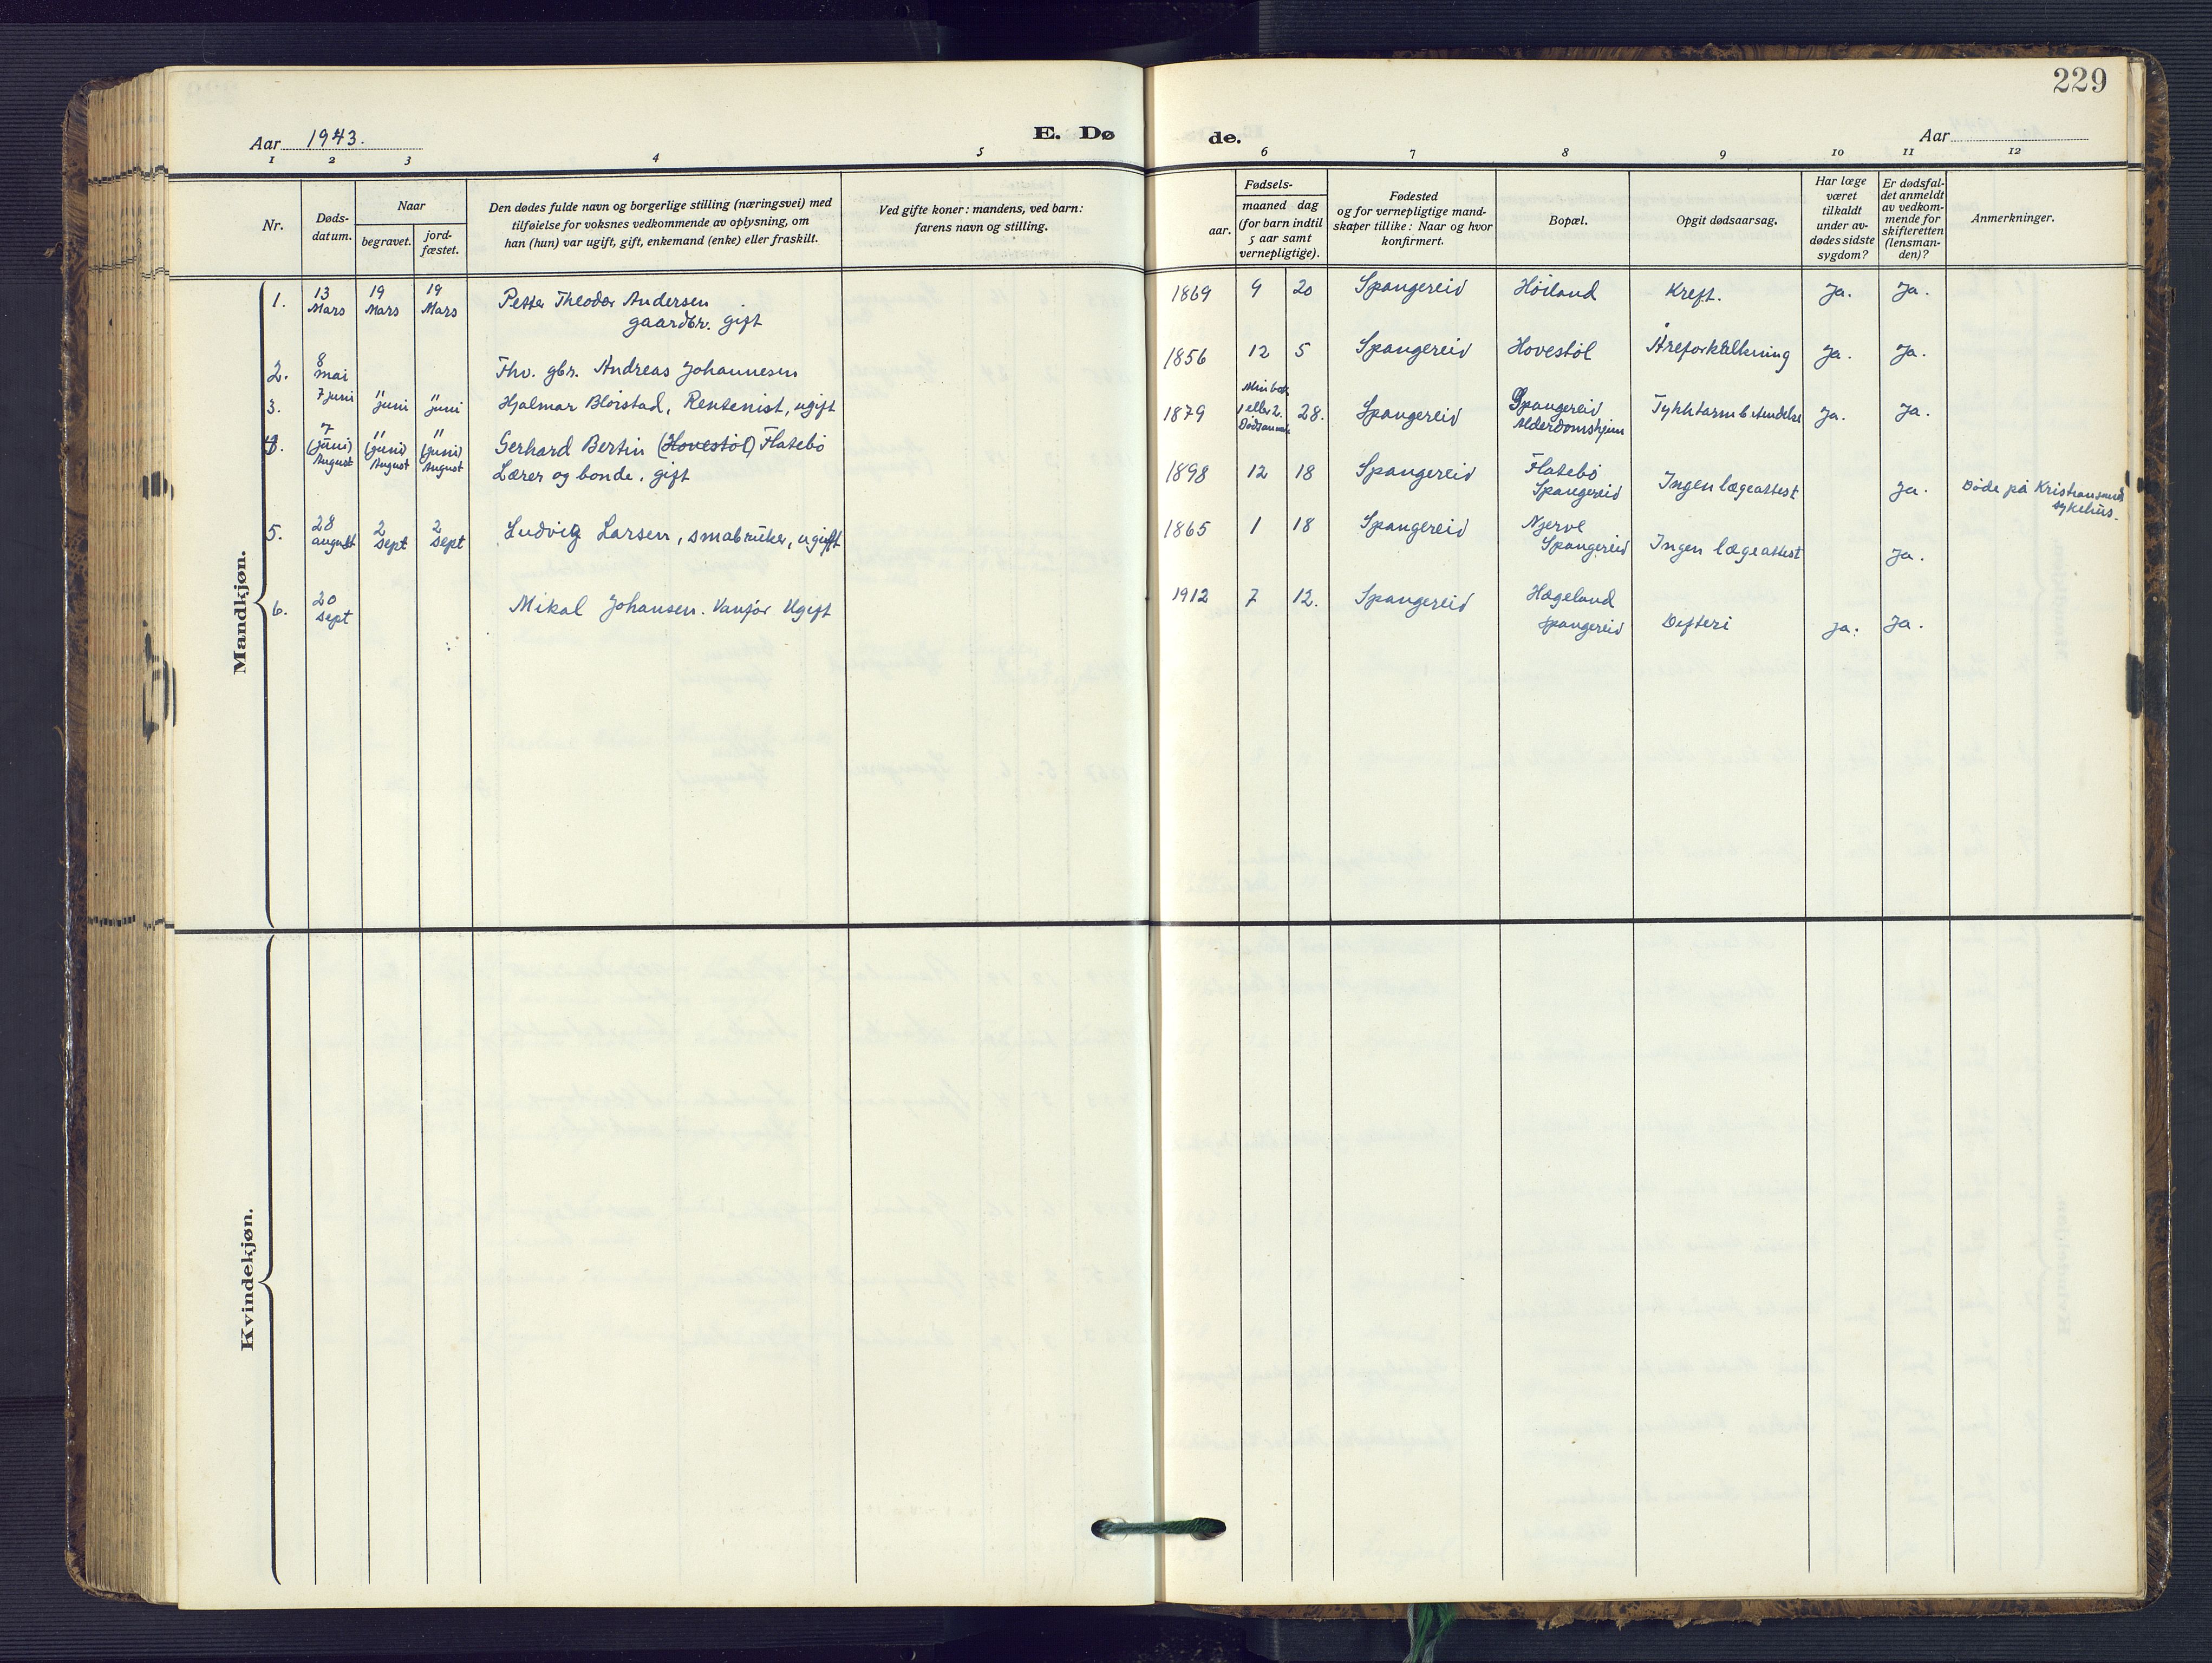 229
Aar 1943.
E. Dø de.
Aar
1 2 3 4 5 6 7 8 9 10 11 12
Nr.
Døds-
datum.
Naar
begravet.
jord-
fæstet.
Den dødes fulde navn og borgerlige stilling (næringsvei) med
tilføielse for voksnes vedkommende av oplysning, om
han (hun) var ugift, gift, enkemand (enke) eller fraskilt.
Ved gifte koner: mandens, ved barn:
farens navn og stilling.
Fødsels-
aar.
maaned dag
(for barn indtil
5 aar samt
vernepligtige).
Fødested
og for vernepligtige mand-
skaper tillike: Naar og hvor
konfirmert.
Bopæl.
Opgit dødsaarsag.
Har læge
været
tilkaldt
under av-
dødes sidste
sygdom?
Er dødsfal-
det anmeldt
av vedkom-
mende for
skifteretten
(lensman-
den)?
Anmerkninger.
Mandkjøn.
1. 13 19 19 Petter Theodor Andersen 1869 9 20 Spangereid Høiland Kreft. Ja. Ja.
Mars Mars Mars gaardbr. gift
2. 8 mai Fhv. gbr. Andreas Johannesen 1856 12 5 Spangereid Hovestøl Åreforkalkning Ja. Ja.
3. 7 juni 11 juni 11 juni Hjalmar Blörstad, Rentenist, ugift 1879 1 eller 2. 28. Spangereid Spangereid Tykktarmbetendelse Ja. Ja.
Alderdomsheim
4. 7 11 11 Gerhard Bertin (Hovestøl) Flatebö 1898 12 18 Spangereid Flatebö Ingen lægeattest Ja. Döde på Kristiansands
(juni) (juni) (juni) Spangereid sykehus.
August August August
Lærer og bonde, gift
5. 28 2 2 Ludvig Larsen, småbruker, ugift 1865 1 18 Spangereid Njerve Ingen lægeattest Ja.
august Sept Sept Spangereid
6. 20 Mikal Johansen. Vanför Ugift 1912 7 12. Spangereid Hægeland Difteri Ja. Ja.
Sept Spangereid
Kvindekjøn.